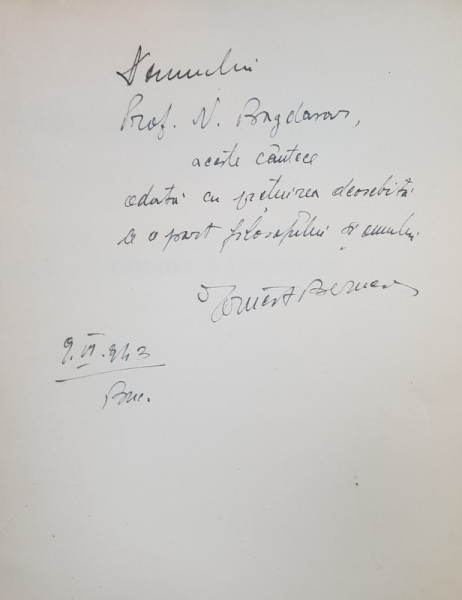 Domnului
Prof. N. Bagdasar,
aceste cântece
odată cu prețuirea deosebită
ce o port filosofului și omului.
Ernest Bernea
9.VI.943
Buc.